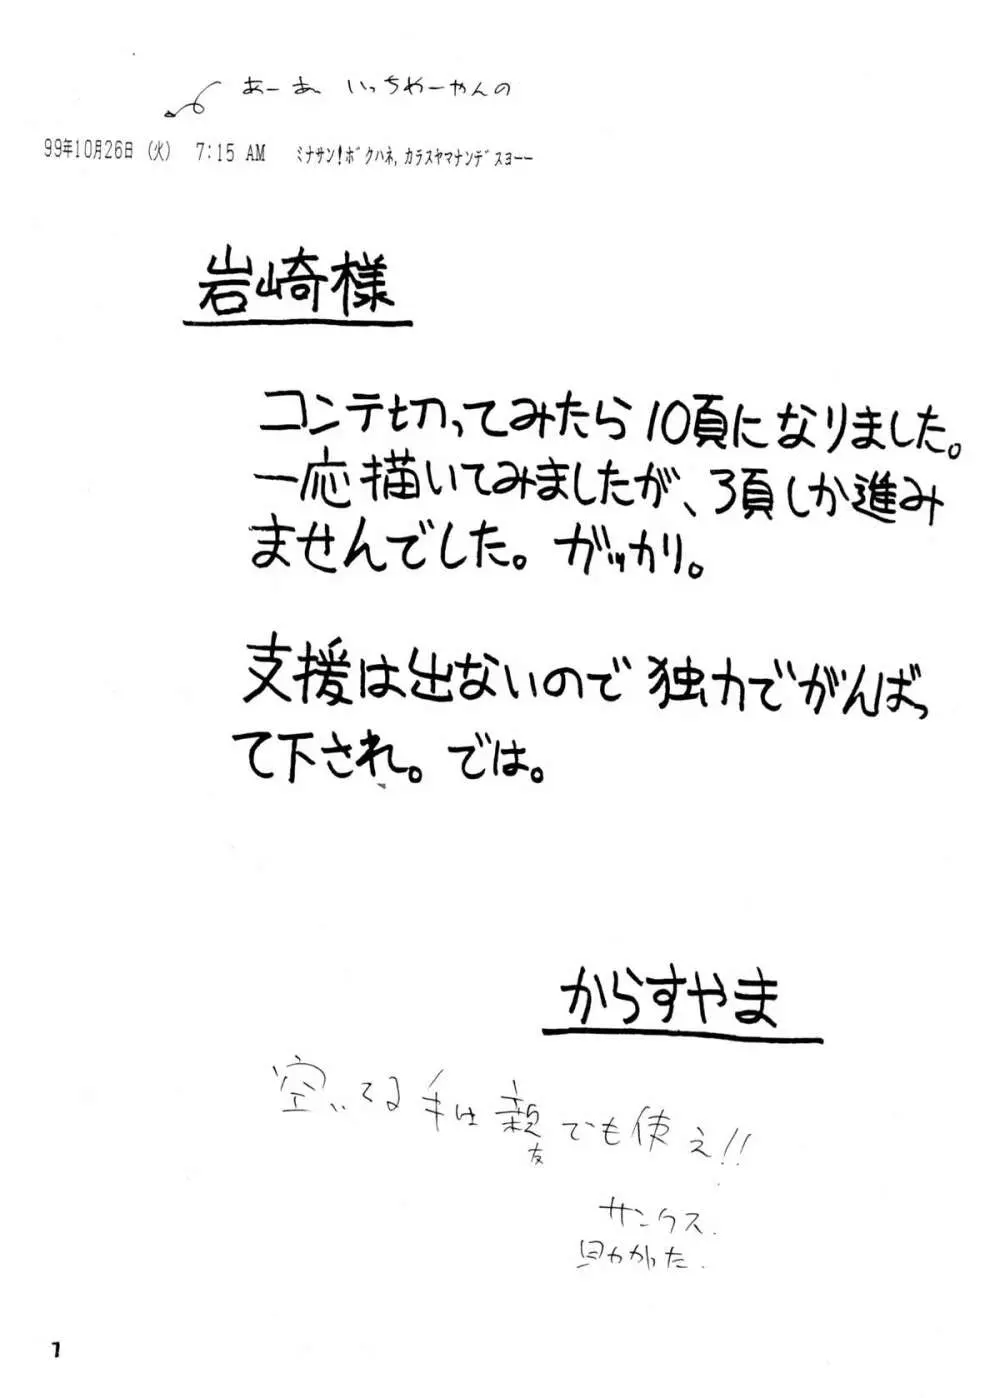 あーあ いっちゃーやんの
99年10月26日 (火) 7:15 AM ミナサン!ボクハネ,カラスヤマナンデスヨーー
岩崎様
コンテ切ってみたら10頁になりました。
一応描いてみましたが、3頁しか進み
ませんでした。ガッカリ。
支援は出ないので独力でがんばっ
て下され。では。
からすやま
空いてる手は親でも使え!!
友
サンクス.
助かった.
7